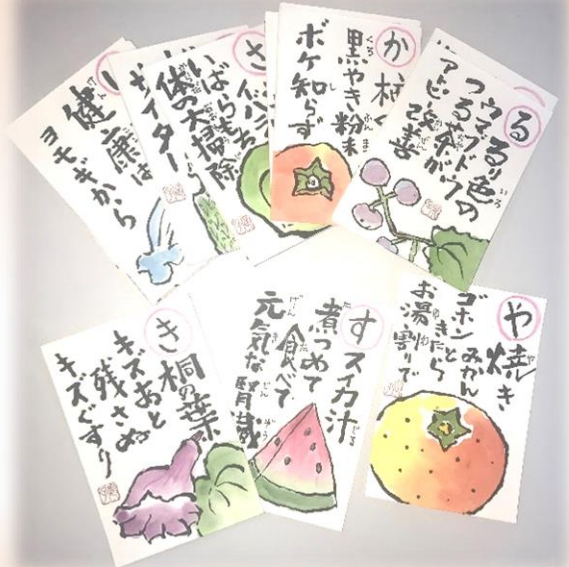 健康は
ヨモギから
サイダー
さ
体の大掃除
か
柿
黒やき粉末
ボケ知らず
る
るり色の
ウマブドウ
つる茶が
アトピ改善
き
桐の葉
キズあと
残さぬ
キズぐすり
す
スイカ汁
煮つめて
食べて
元気な腎臓
や
焼き
みかん
ゴホンと
きたら
お湯割りで